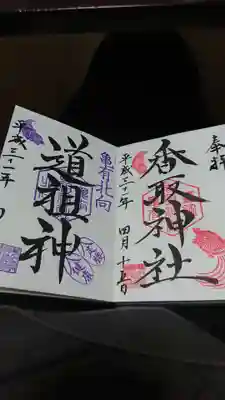 奉拝
香取神社
平成三十一年 四月十五日
亀有北向
道祖神
平成三十一年